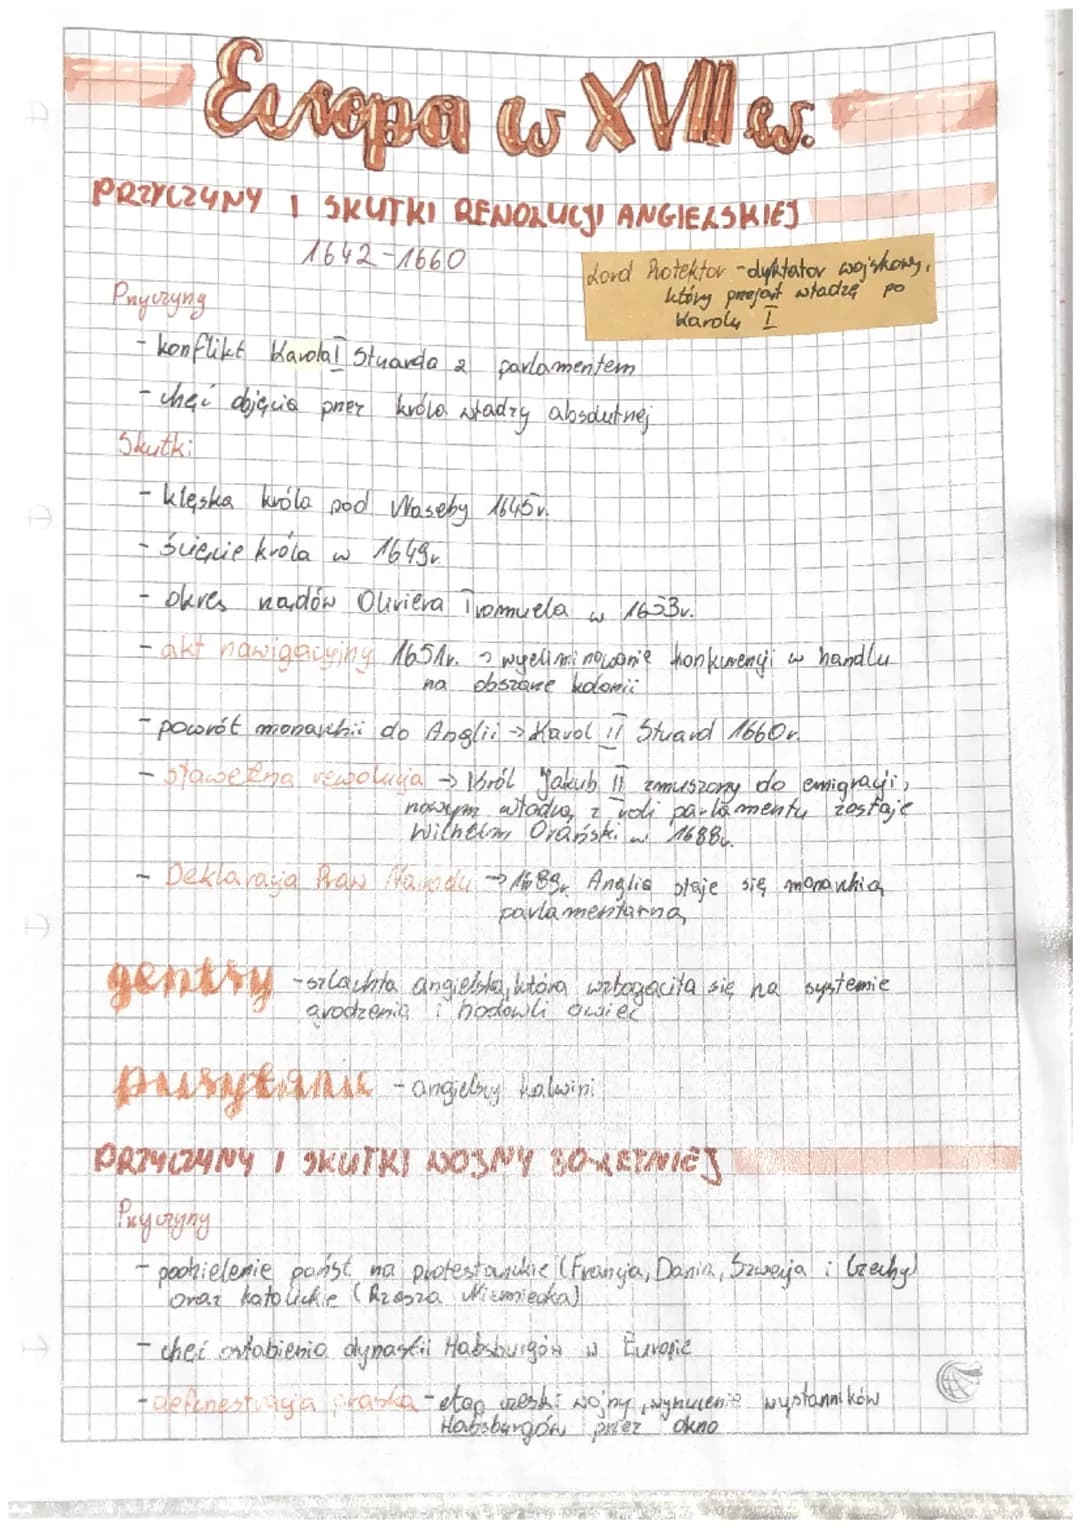 Europa w XVII w.
PRZYCZYNY I SKUTKI REWOLUCJI ANGIELSKIEJ
1642-1660
Lord Protektor - dyktator wojskowy,
który przejął władzę po
Karolu I
Przyczyny
- konflikt Karola I Stuarda z parlamentem
- chęć objęcia przez króla władzy absolutnej
Skutki
- klęska króla pod Naseby 1645r.
- ścięcie króla w 1649r.
- okres rządów Oliviera w 1653r.
- akt nawigacyjny 1651r. → wyeliminowanie konkurencji w handlu
na obszarze kolonii
- powrót monarchii do Anglii → Karol II Stuard 1660r.
- sławetna rewolucja → Król Jakub II zmuszony do emigracji,
nowym władcą z woli parlamentu zostaje
Wilhelm Orański w 1688r.
- Deklaracja Praw Narodu → 1689r. Anglia staje się monarchią
parlamentarną
gentry - szlachta angielska, która wzbogaciła się na systemie
grodzenia i hodowli owiec
purytanie - angielscy kalwini
PRZYCZYNY I SKUTKI WOJNY 30-LETNIEJ
Przyczyny
- podzielenie państ na protestanckie (Francja, Dania, Szwecja i Czechy)
oraz katolickie (Rzesza Niemiecka)
- chęć osłabienia dynastii Habsburgów w Europie
- defenestracja praska - etap czeski wojny, wyrzucenie wysłanników
Habsburgów przez okno